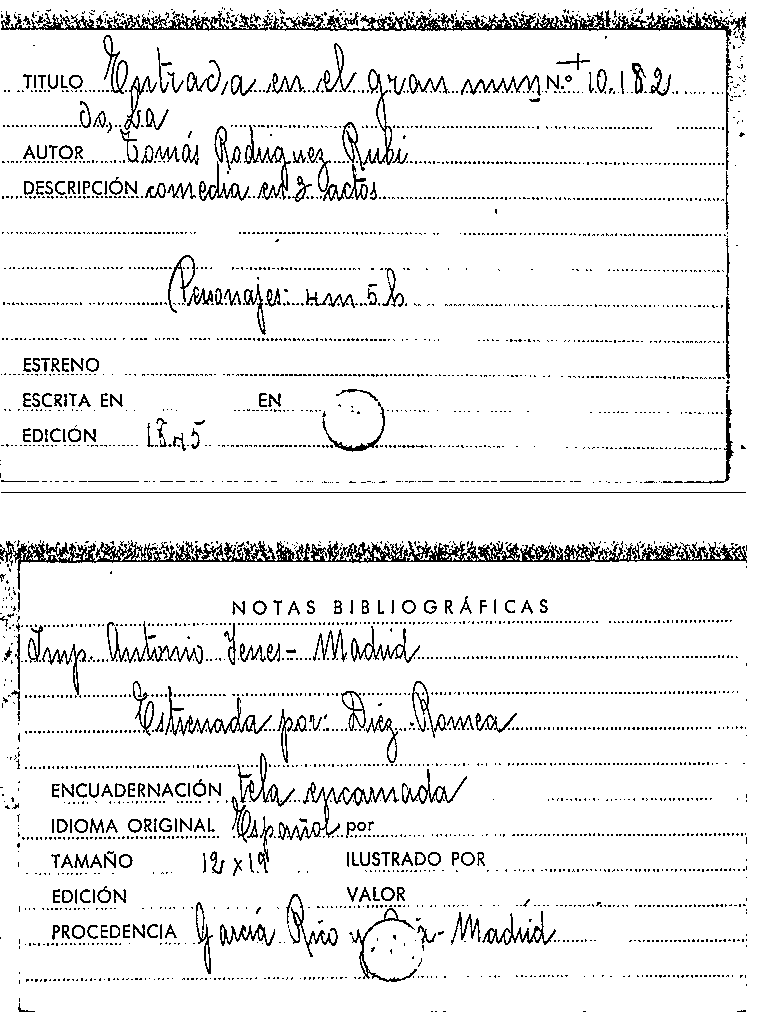 TITULO Entrada en el gran mun N.º 10.182
do, La
AUTOR Tomás Rodriguez Rubi
DESCRIPCIÓN comedia en 3 actos
Personajes: 4m 5h
ESTRENO
ESCRITA EN EN
EDICIÓN 1845
NOTAS BIBLIOGRÁFICAS
Imp. Antonio Yenes - Madrid
Estrenada por: Diez, Romea
ENCUADERNACIÓN tela encarnada
IDIOMA ORIGINAL Español por
TAMAÑO 12 x 19 ILUSTRADO POR
EDICIÓN VALOR
PROCEDENCIA García Rico y - Madrid